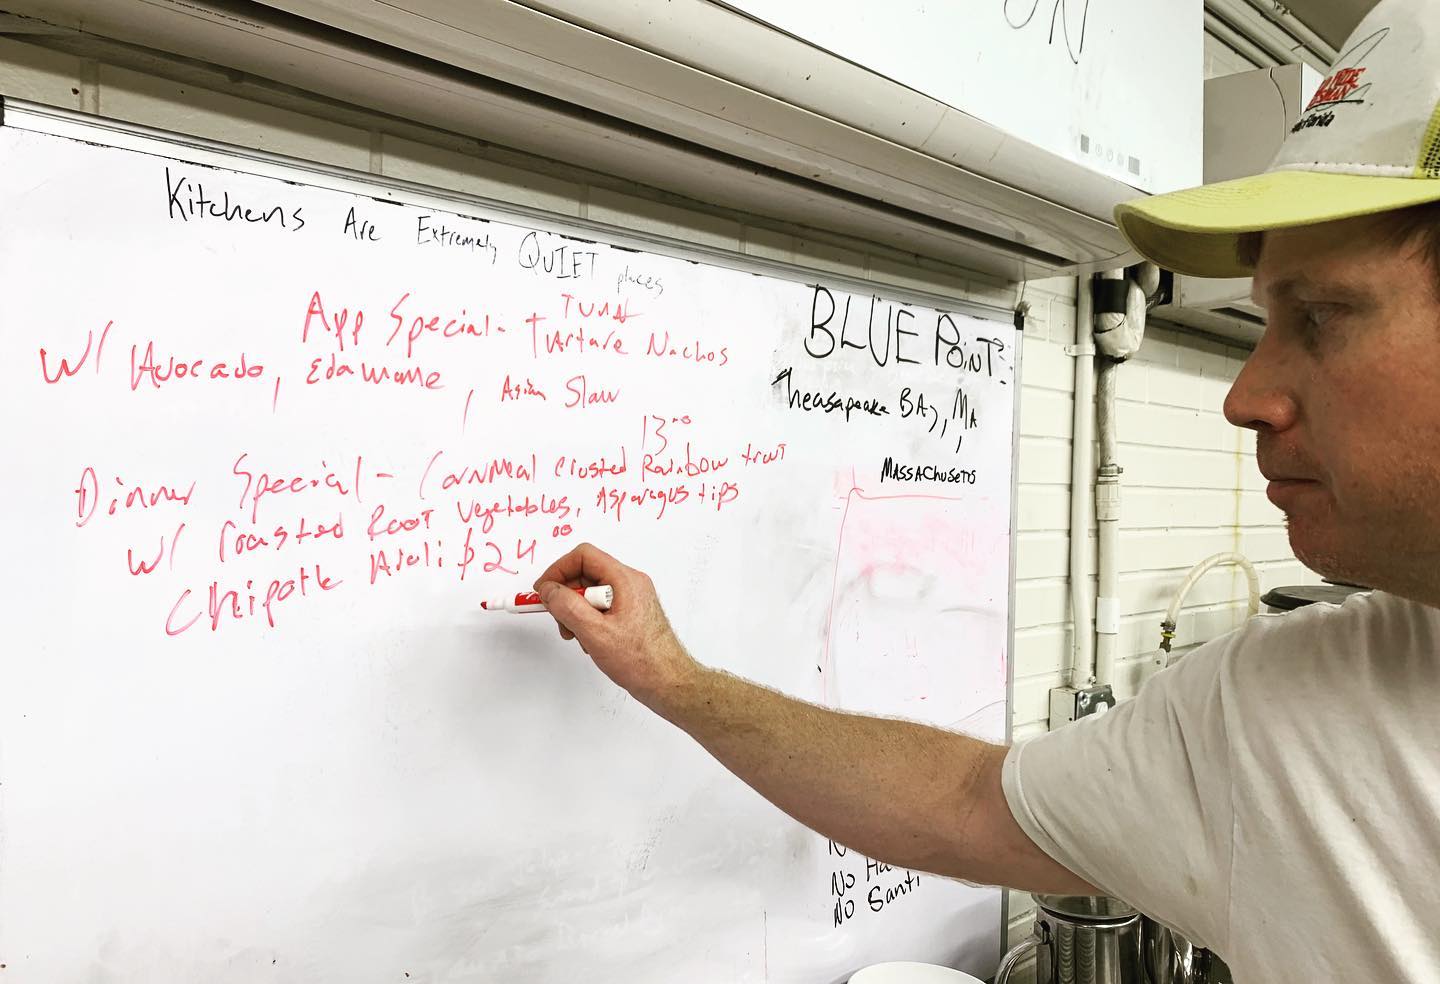 Kitchens Are Extremely QUIET places
App Special - Tuna
Tartare Nachos
w/ Avocado, Edamame, Asian Slaw
13.00
Dinner Special - Cornmeal Crusted Rainbow trout
w/ roasted Root Vegetables, Asparagus tips
Chipotle Aioli $24.00
BLUE POINT
Cheasapeake BAy, MA
MASSACHUSETTS
No
No Santi